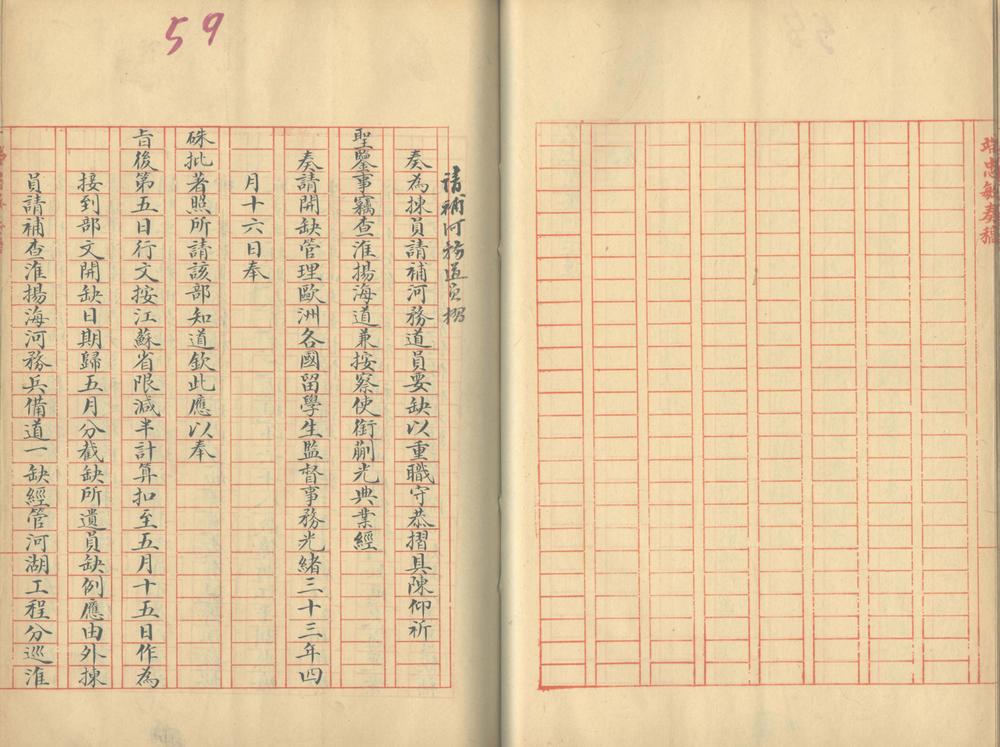 59
端忠敏奏稿
請補河務道員摺
奏為揀員請補河務道員要缺以重職守恭摺具陳仰祈
聖鑒事竊查淮揚海道兼按察使銜蒯光典業經
奏請開缺管理歐洲各國留學生監督事務光緒三十三年四
月十六日奉
硃批著照所請該部知道欽此應以奉
旨後第五日行文按江蘇省限減半計算扣至五月十五日作為
接到部文開缺日期歸五月分截缺所遺員缺例應由外揀
員請補查淮揚海河務兵備道一缺經管河湖工程分巡淮